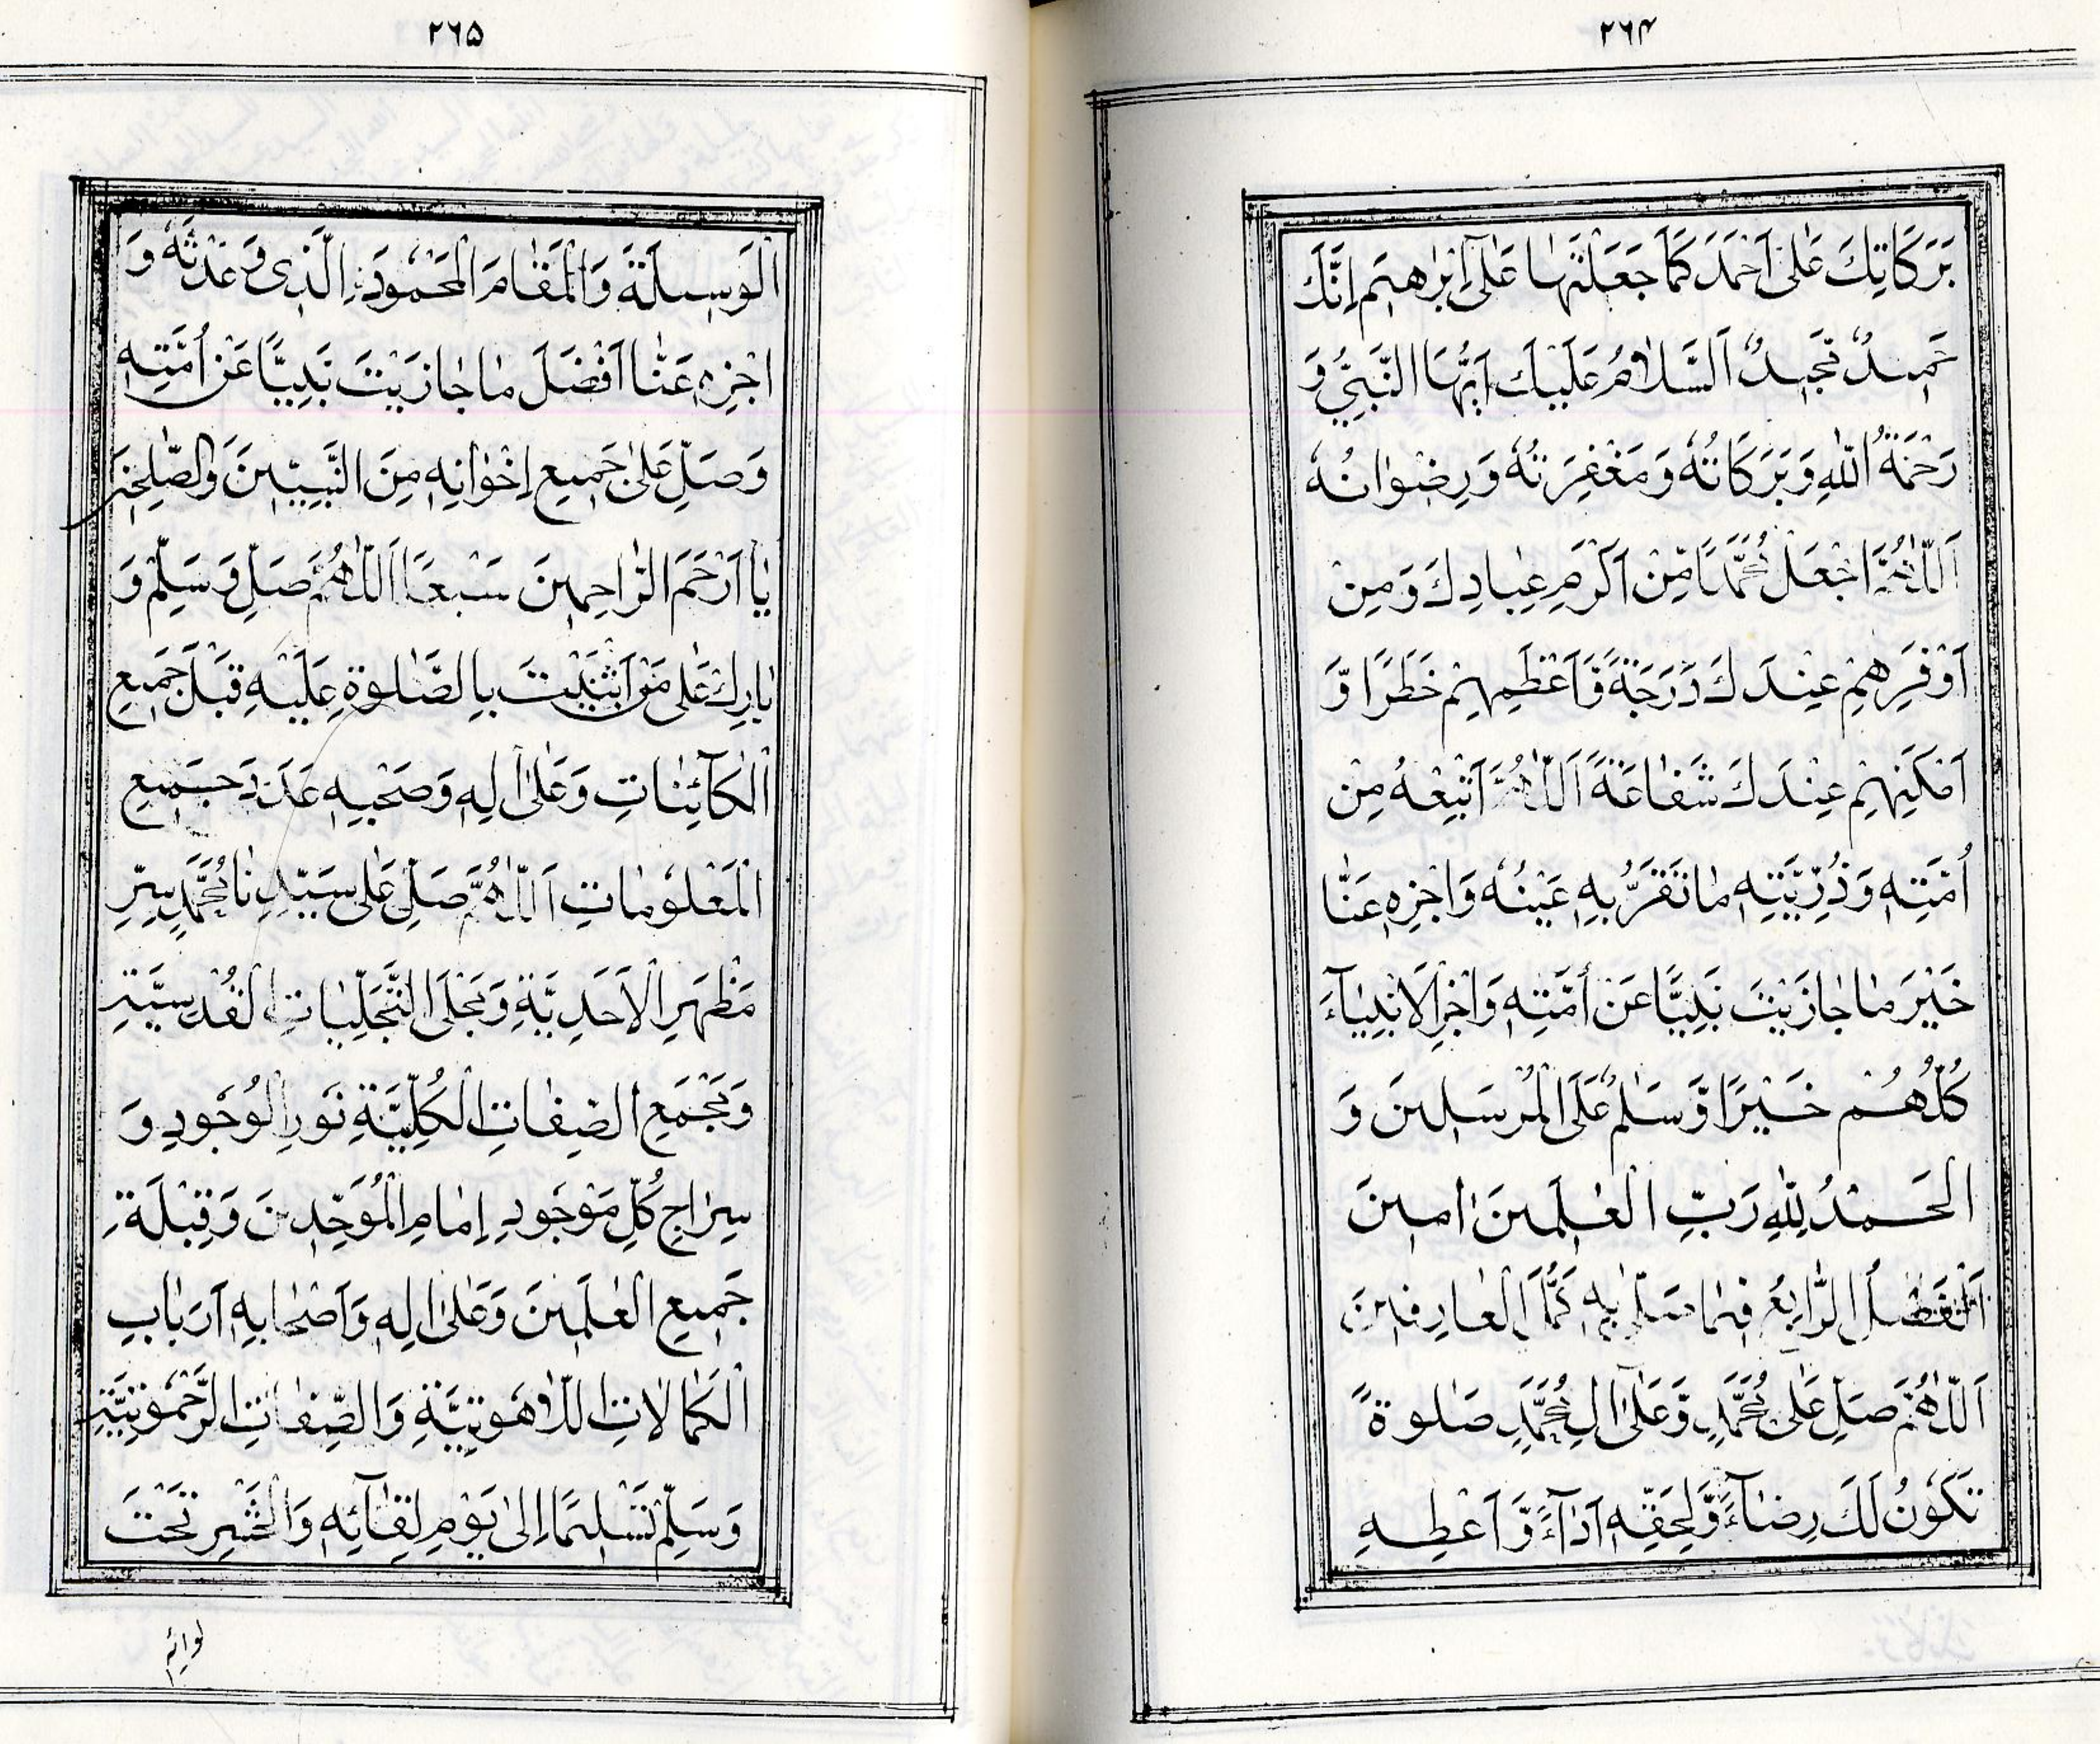 ۲۶۴
بَرَكَاتِكَ عَلٰى اَحْمَدَ كَمَا جَعَلْتَهَا عَلٰى اِبْرٰهِيْمَ اِنَّكَ
حَمِيْدٌ مَّجِيْدٌ اَلسَّلَامُ عَلَيْكَ اَيُّهَا النَّبِيُّ وَ
رَحْمَةُ اللّٰهِ وَبَرَكَاتُهٗ وَمَغْفِرَتُهٗ وَرِضْوَانُهٗ
اَللّٰهُمَّ اجْعَلْ مُحَمَّدًا مِّنْ اَكْرَمِ عِبَادِكَ وَمِنْ
اَوْفَرِهِمْ عِنْدَكَ دَرَجَةً وَّاَعْظَمِهِمْ خَطَرًا وَّ
اَمْكَنِهِمْ عِنْدَكَ شَفَاعَةً اَللّٰهُمَّ اَتْبِعْهُ مِنْ
اُمَّتِهٖ وَذُرِّيَّتِهٖ مَا تَقَرُّ بِهٖ عَيْنُهٗ وَاجْزِهٖ عَنَّا
خَيْرَ مَا جَازَيْتَ نَبِيًّا عَنْ اُمَّتِهٖ وَاجْزِ الْاَنْبِيَآءَ
كُلَّهُمْ خَيْرًا وَّسَلٰمٌ عَلَى الْمُرْسَلِيْنَ وَ
الْحَمْدُ لِلّٰهِ رَبِّ الْعٰلَمِيْنَ اٰمِيْنَ
اَلْفَصْلُ الرَّابِعُ فِيْمَا صَلّٰى بِهٖ كُمَّلُ الْعَارِفِيْنَ
اَللّٰهُمَّ صَلِّ عَلٰى مُحَمَّدٍ وَّعَلٰى اٰلِ مُحَمَّدٍ صَلٰوةً
تَكُوْنُ لَكَ رِضَآءً وَّلِحَقِّهٖ اَدَآءً وَّاَعْطِهِ
۲۶۵
الْوَسِيْلَةَ وَالْمَقَامَ الْمَحْمُوْدَ الَّذِى وَعَدْتَّهٗ وَ
اجْزِهٖ عَنَّا اَفْضَلَ مَا جَازَيْتَ نَبِيًّا عَنْ اُمَّتِهٖ
وَصَلِّ عَلٰى جَمِيْعِ اِخْوَانِهٖ مِنَ النَّبِيِّيْنَ وَالصّٰلِحِيْنَ
يَا اَرْحَمَ الرَّاحِمِيْنَ سَبْعًا اَللّٰهُمَّ صَلِّ وَسَلِّمْ وَ
بَارِكْ عَلٰى مَنْ اَثْنَيْتَ بِالصَّلٰوةِ عَلَيْهِ قَبْلَ جَمِيْعِ
الْكَآئِنَاتِ وَعَلٰى اٰلِهٖ وَصَحْبِهٖ عَدَدَ جَمِيْعِ
الْمَعْلُوْمَاتِ اَللّٰهُمَّ صَلِّ عَلٰى سَيِّدِنَا مُحَمَّدٍ سِرِّ
مَظْهَرِ الْاَحَدِيَّةِ وَمَجْلَى التَّجَلِّيَاتِ الْقُدْسِيَّةِ
وَمَجْمَعِ الصِّفَاتِ الْكُلِّيَّةِ نُوْرِ الْوُجُوْدِ وَ
سِرَاجِ كُلِّ مَوْجُوْدٍ اِمَامِ الْمُوَحِّدِيْنَ وَقِبْلَةِ
جَمِيْعِ الْعٰلَمِيْنَ وَعَلٰى اٰلِهٖ وَاَصْحَابِهٖ اَرْبَابِ
الْكَمَالَاتِ اللَّاهُوْتِيَّةِ وَالصِّفَاتِ الرَّحْمُوْتِيَّةِ
وَسَلِّمْ تَسْلِيْمًا اِلٰى يَوْمِ لِقَآئِهٖ وَالْحَشْرِ تَحْتَ
لوائه